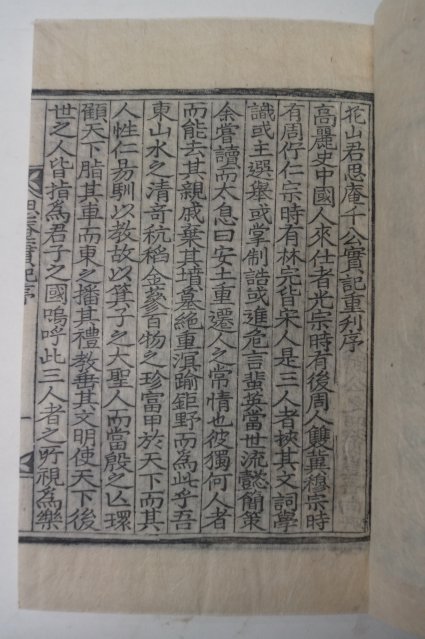 花山君思庵千公實記重刋序
高麗史中國人來仕者光宗時有後周人雙冀穆宗時
有周佇仁宗時有林完皆宋人是三人者挾其文詞學
識或主選舉或掌制誥或進危言蜚英當世流懿簡策
余嘗讀而太息曰安土重遷人之常情也彼獨何人者
而能去其親戚棄其墳墓絶重溟踰鉅野而為此乎吾
東山水之清奇秔稻金蔘百物之珍富甲於天下而其
人性仁昜馴以教故以箕子之大聖人而當殷之亾環
顧天下脂其車而東之播其禮教垂其文明使天下後
世之人皆指為君子之國嗚呼此三人者之所視為樂
思庵實記序